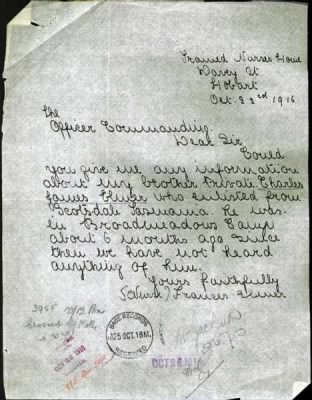 Trained Nurses Home
Davey St
Hobart
Oct. 22nd 1916
The
Officer Commanding
Dear Sir
Could
you give me any information
about my brother Private Charles
James who enlisted from
Scotsdale Tasmania he was
in Broadmeadows Camp
about 6 months ago since
then we have not heard
anything of him.
Yours faithfully
(Nurse) Frances
3955
BASE RECORDS
25 OCT. 16
RECEIVED
OCT 26 1916